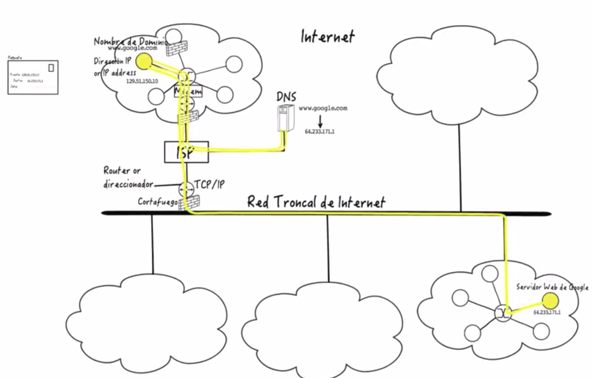 Internet
Nombre de Dominio
www.google.com
Dirección IP
or IP address
129.51.150.10
Modem
DNS
www.google.com
64.233.171.1
ISP
Router or
direccionador
TCP/IP
Cortafuego
Red Troncal de Internet
Servidor Web de Google
64.233.171.1